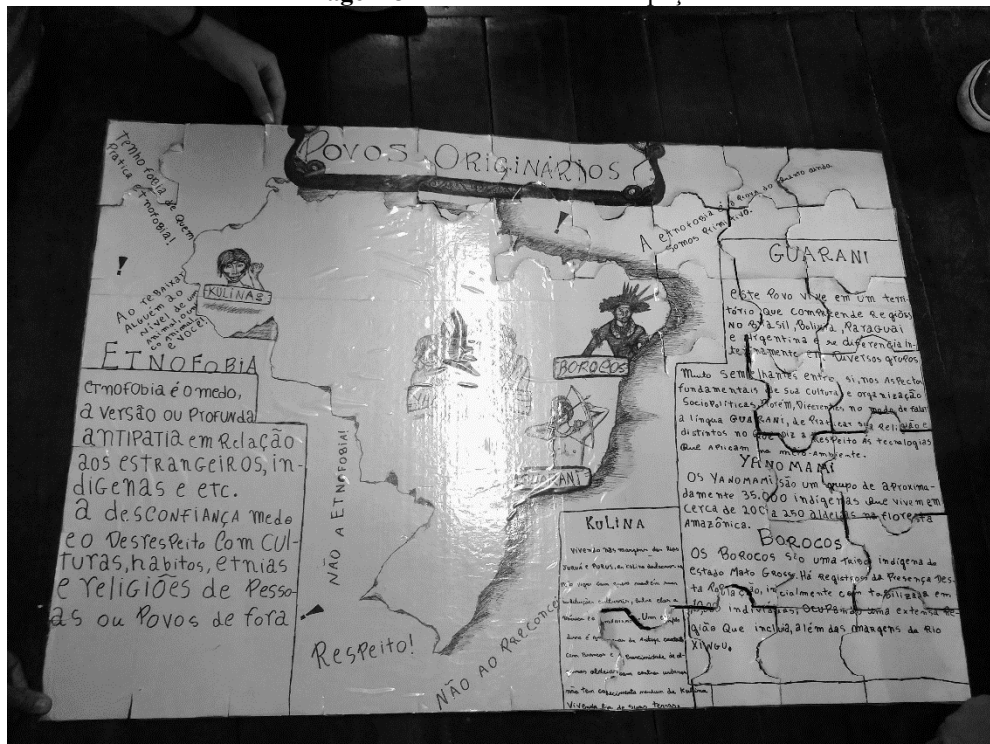 POVOS ORIGINÁRIOS
Tenho fobia de Quem
Pratica etnofobia!
!
Ao rebaixar
Alguém ao
Nível de um
animal, o único
animal
é você!
KULINAS
!
A etnofobia é a Prova do quanto ainda
somos Primitivo.
BOROCOS
GUARANI
ETNOFOBIA
etnofobia é o medo,
a versão ou Profunda
ANTIPATIA em Relação
aos estrangeiros, in-
dígenas e etc.
a desconfiança medo
e o Desrespeito Com CUl-
turas, hábitos, etnias
e religiões de Pesso-
as ou Povos de fora
NÃO A ETNOFOBIA!
!
Respeito!
NÃO AO PRECONCE
GUARANI
este Povo vive em um terri-
tório que compreende Regiões
no Brasil, Bolívia, Paraguai
e Argentina e se diferencia in-
ternamente em Diversos grupos
Muito Semelhantes entre si, nos Aspectos
fundamentais de sua cultura e organização
Sociopolíticas, Porém, Diferentes no modo de falar
a língua GUARANI, de Praticar sua Religião e
distintos no que diz a Respeito às tecnologias
Que Aplicam no meio-Ambiente.
YANOMAMI
OS YANOMAMI são um grupo de aproxima-
damente 35.000 indígenas que vivem em
cerca de 200 a 250 aldeias na floresta
Amazônica.
BOROCOS
OS BOROCOS são uma tribo indígena do
estado Mato Grosso. Há Registros da Presença Des-
ta População, inicialmente contabilizada em
10,00 indivíduos, Ocupando uma extensa Re-
gião Que incluía, além das margens do Rio
XINGU.
KULINA
Vivendo nas margens dos Rios
Juruá e Purus, os Kulina
Um
com Brancos e a Proximidade de al-
gumas aldeias com centros urbanos
não tem Kulina
Vivendo fora de suas terras.